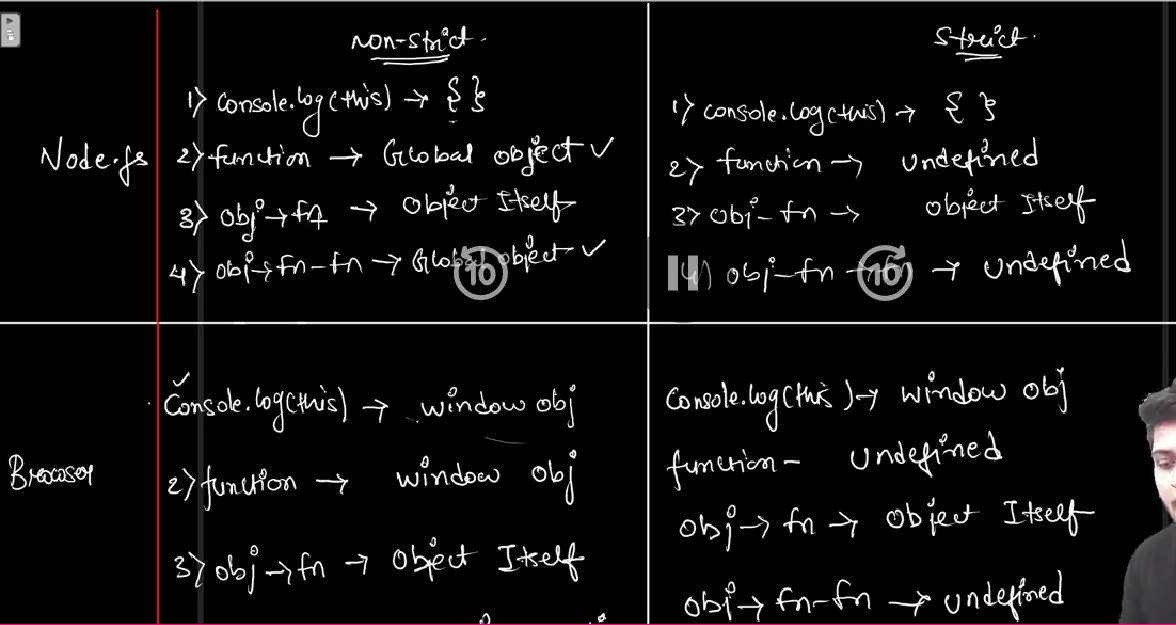 Non-strict.
Strict.
Node.js
1) console.log(this) → { }
2) function → Global object ✓
3) obj → fn → Object Itself
4) obj → fn - fn → Global object ✓
1) console.log(this) → { }
2) function → undefined
3) obj - fn → Object Itself
4) obj - fn → fn → undefined
10
10
Browser
Console.log(this) → window obj
2) function → window obj
3) obj → fn → Object Itself
Console.log(this) → window obj
function - undefined
obj → fn → Object Itself
obj → fn - fn → undefined